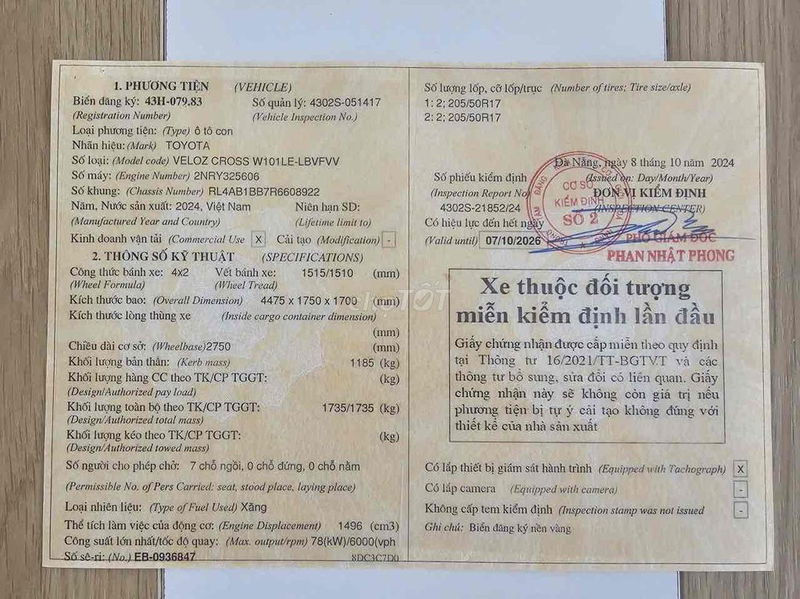 1. PHƯƠNG TIỆN (VEHICLE)
Biển đăng ký: 43H-079.83 Số quản lý: 4302S-051417
(Registration Number) (Vehicle Inspection No.)
Loại phương tiện: (Type) ô tô con
Nhãn hiệu: (Mark) TOYOTA
Số loại: (Model code) VELOZ CROSS W101LE-LBVFVV
Số máy: (Engine Number) 2NRY325606
Số khung: (Chassis Number) RL4AB1BB7R6608922
Năm, Nước sản xuất: 2024, Việt Nam Niên hạn SD:
(Manufactured Year and Country) (Lifetime limit to)
Kinh doanh vận tải (Commercial Use X Cải tạo (Modification) -
2. THÔNG SỐ KỸ THUẬT (SPECIFICATIONS)
Công thức bánh xe: 4x2 Vết bánh xe: 1515/1510 (mm)
(Wheel Formula) (Wheel Tread)
Kích thước bao: (Overall Dimension) 4475 x 1750 x 1700 (mm)
Kích thước lòng thùng xe (Inside cargo container dimension)
(mm)
Chiều dài cơ sở: (Wheelbase)2750 (mm)
Khối lượng bản thân: (Kerb mass) 1185 (kg)
Khối lượng hàng CC theo TK/CP TGGT: (kg)
(Design/Authorized pay load)
Khối lượng toàn bộ theo TK/CP TGGT: 1735/1735 (kg)
(Design/Authorized total mass)
Khối lượng kéo theo TK/CP TGGT: (kg)
(Design/Authorized towed mass)
Số người cho phép chở: 7 chỗ ngồi, 0 chỗ đứng, 0 chỗ nằm
(Permissible No. of Pers Carried: seat, stood place, laying place)
Loại nhiên liệu: (Type of Fuel Used) Xăng
Thể tích làm việc của động cơ: (Engine Displacement) 1496 (cm3)
Công suất lớn nhất/tốc độ quay: (Max. output/rpm) 78(kW)/6000(vph
Số sê-ri: (No.) EB-0936847 8DC3C7D0
Số lượng lốp, cỡ lốp/trục (Number of tires; Tire size/axle)
1: 2; 205/50R17
2: 2; 205/50R17
Đà Nẵng, ngày 8 tháng 10 năm 2024
Số phiếu kiểm định (Issued on: Day/Month/Year)
(Inspection Report No) ĐƠN VỊ KIỂM ĐỊNH
4302S-21852/24 (INSPECTION CENTER)
CƠ SỞ
KIỂM ĐỊNH
SỐ 2
Có hiệu lực đến hết ngày
(Valid until) 07/10/2026 PHÓ GIÁM ĐỐC
PHAN NHẬT PHONG
Xe thuộc đối tượng
miễn kiểm định lần đầu
Giấy chứng nhận được cấp miễn theo quy định
tại Thông tư 16/2021/TT-BGTVT và các
thông tư bổ sung, sửa đổi có liên quan. Giấy
chứng nhận này sẽ không còn giá trị nếu
phương tiện bị tự ý cải tạo không đúng với
thiết kế của nhà sản xuất
Có lắp thiết bị giám sát hành trình (Equipped with Tachograph) X
Có lắp camera (Equipped with camera) -
Không cấp tem kiểm định (Inspection stamp was not issued -
Ghi chú: Biển đăng ký nền vàng